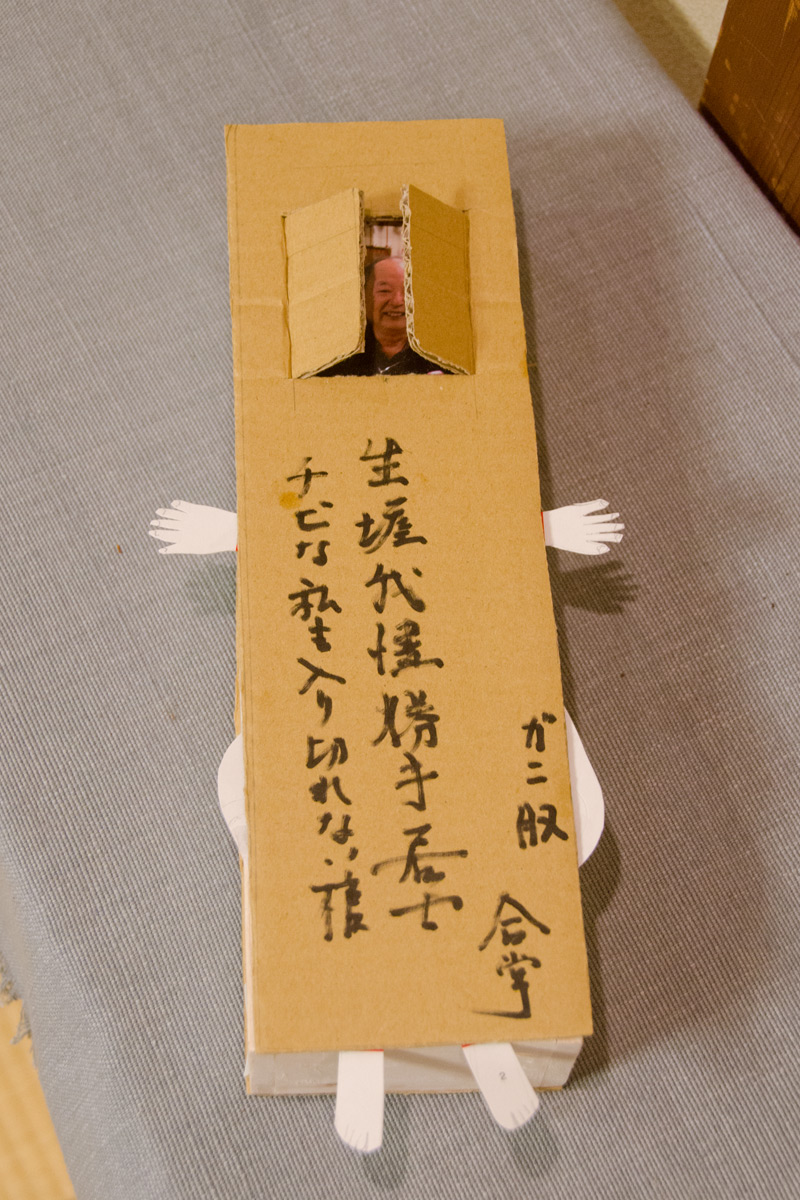 ガニ股
合掌
生涯我儘勝手居士
チビな私も入り切れない棺
2